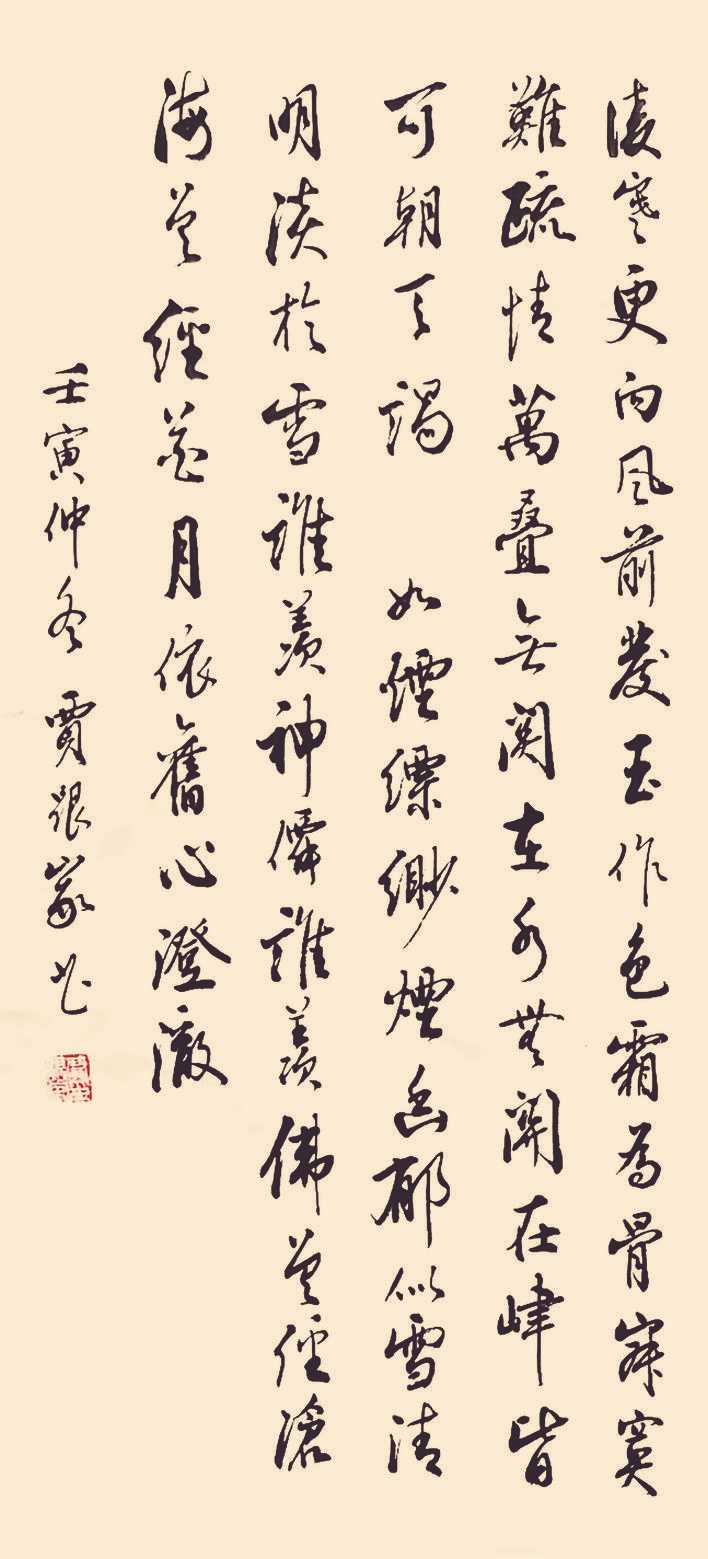 淩寒更向風前發玉作色霜為骨寂寞
難疏情萬疊無關在水無關在峰皆
可朝天謁 如煙縹緲煙幽郁似雪清
明淡於雪誰羨神僊誰羨佛曾經滄
海曾經花月依舊心澄澈
壬寅仲冬 賈书